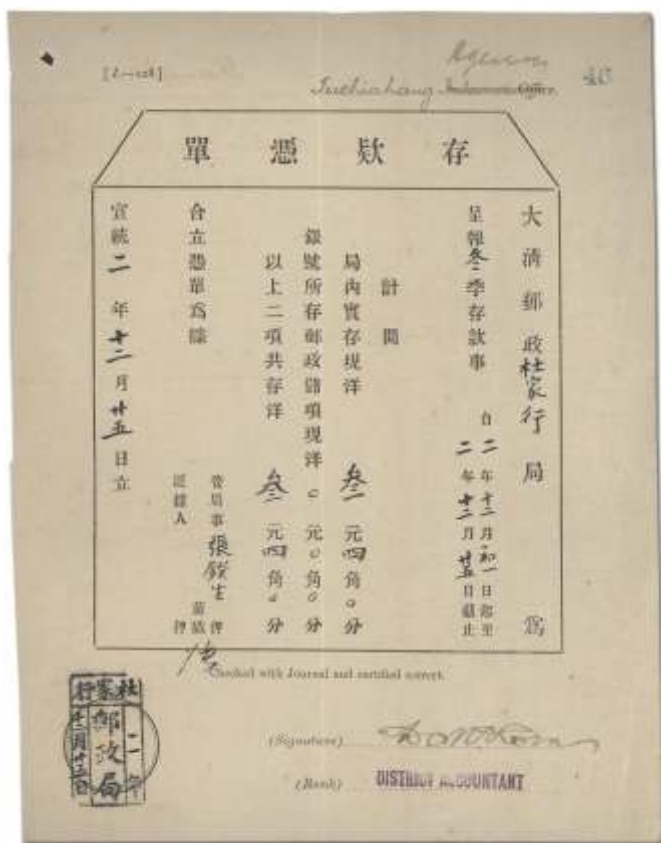 [J.—128]
Agency
Tuchiahang Office.
存欵憑單
大清郵政杜家行局為
呈報叁季存款事
自二年十二月初一日起至
二年十二月廿五日截止
計開
局內實存現洋叁元四角○分
銀號所存郵政儲項現洋○元○角○分
以上二項共存洋叁元四角○分
合立憑單為據
管局事張錢生押
巡錢人
蓋戳押
宣統二年十二月廿五日立
Checked with Journal and certified correct.
(Signature)
(Rank) DISTRICT ACCOUNTANT
杜家行
郵政局
二年
十二月廿五日